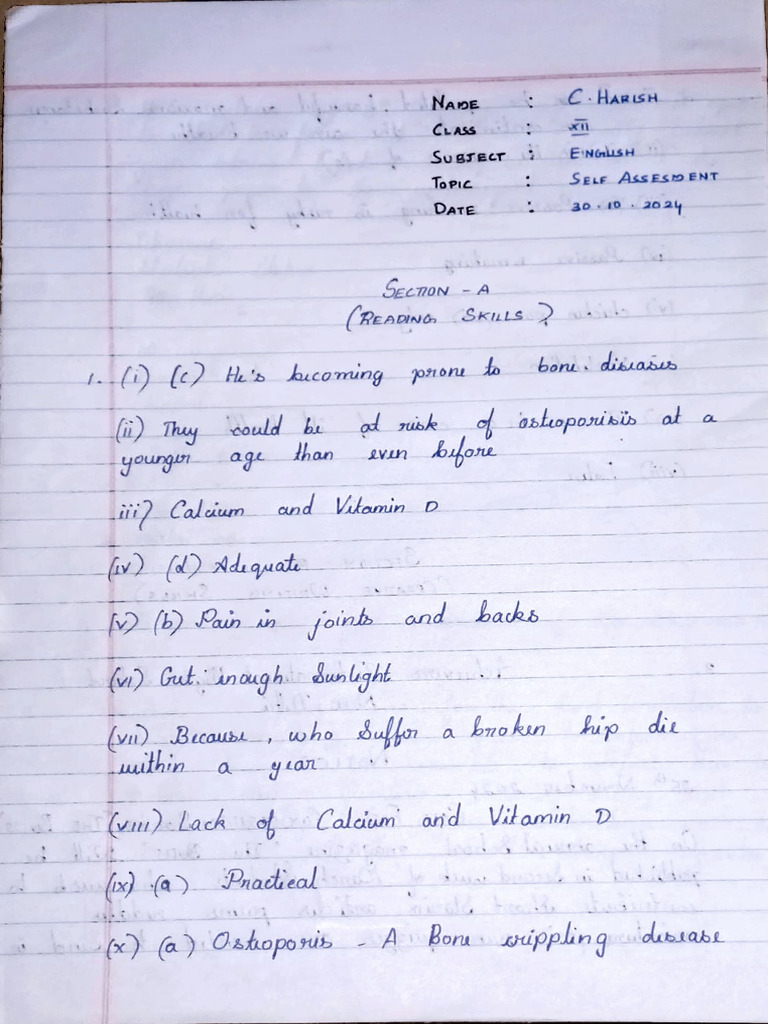 NAME : C. HARISH
CLASS : XII
SUBJECT : ENGLISH
TOPIC : SELF ASSESMENT
DATE : 30.10.2024
SECTION - A
(READING SKILLS)
1. (i) (c) He's becoming prone to bone diseases
(ii) They could be at risk of osteoporisiis at a
younger age than even before
iii) Calcium and Vitamin D
(iv) (d) Adequate
(v) (b) Pain in joints and backs
(vi) Get inough Sunlight
(vii) Because, who Suffer a broken hip die
within a year
(viii) Lack of Calcium and Vitamin D
(ix) (a) Practical
(x) (a) Osteoporis - A Bone crippling disease